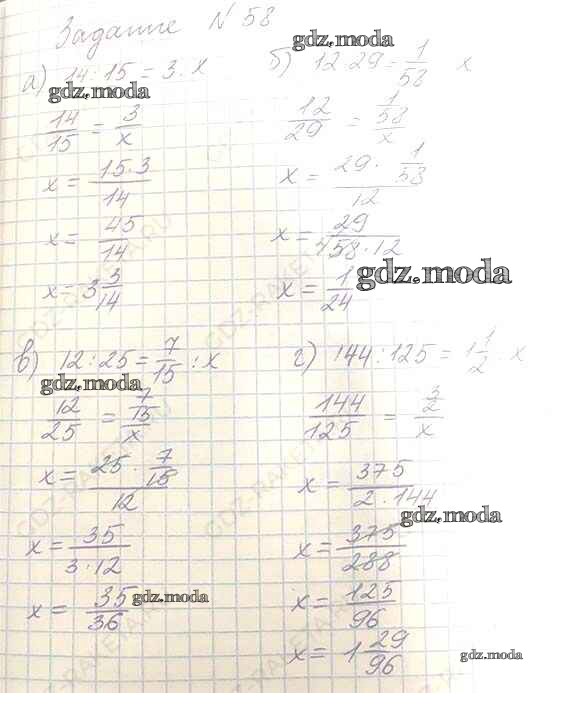 Задание № 58
gdz.moda
а) 14 : 15 = 3 : x
gdz.moda
14/15 = 3/x
x = 15·3/14
x = 45/14
x = 3 3/14
б) 12 : 29 = 1/58 : x
12/29 = 1/58/x
x = 29 · 1/58/12
x = 29/58·12
gdz.moda
x = 1/24
в) 12 : 25 = 7/15 : x
gdz.moda
12/25 = 7/15/x
x = 25 · 7/15/12
x = 35/3·12
x = 35/36
gdz.moda
г) 144 : 125 = 1 1/2 : x
144/125 = 3/2/x
x = 375/2·144
gdz.moda
x = 375/288
x = 125/96
x = 1 29/96
gdz.moda
GDZ-RAKETA.RU